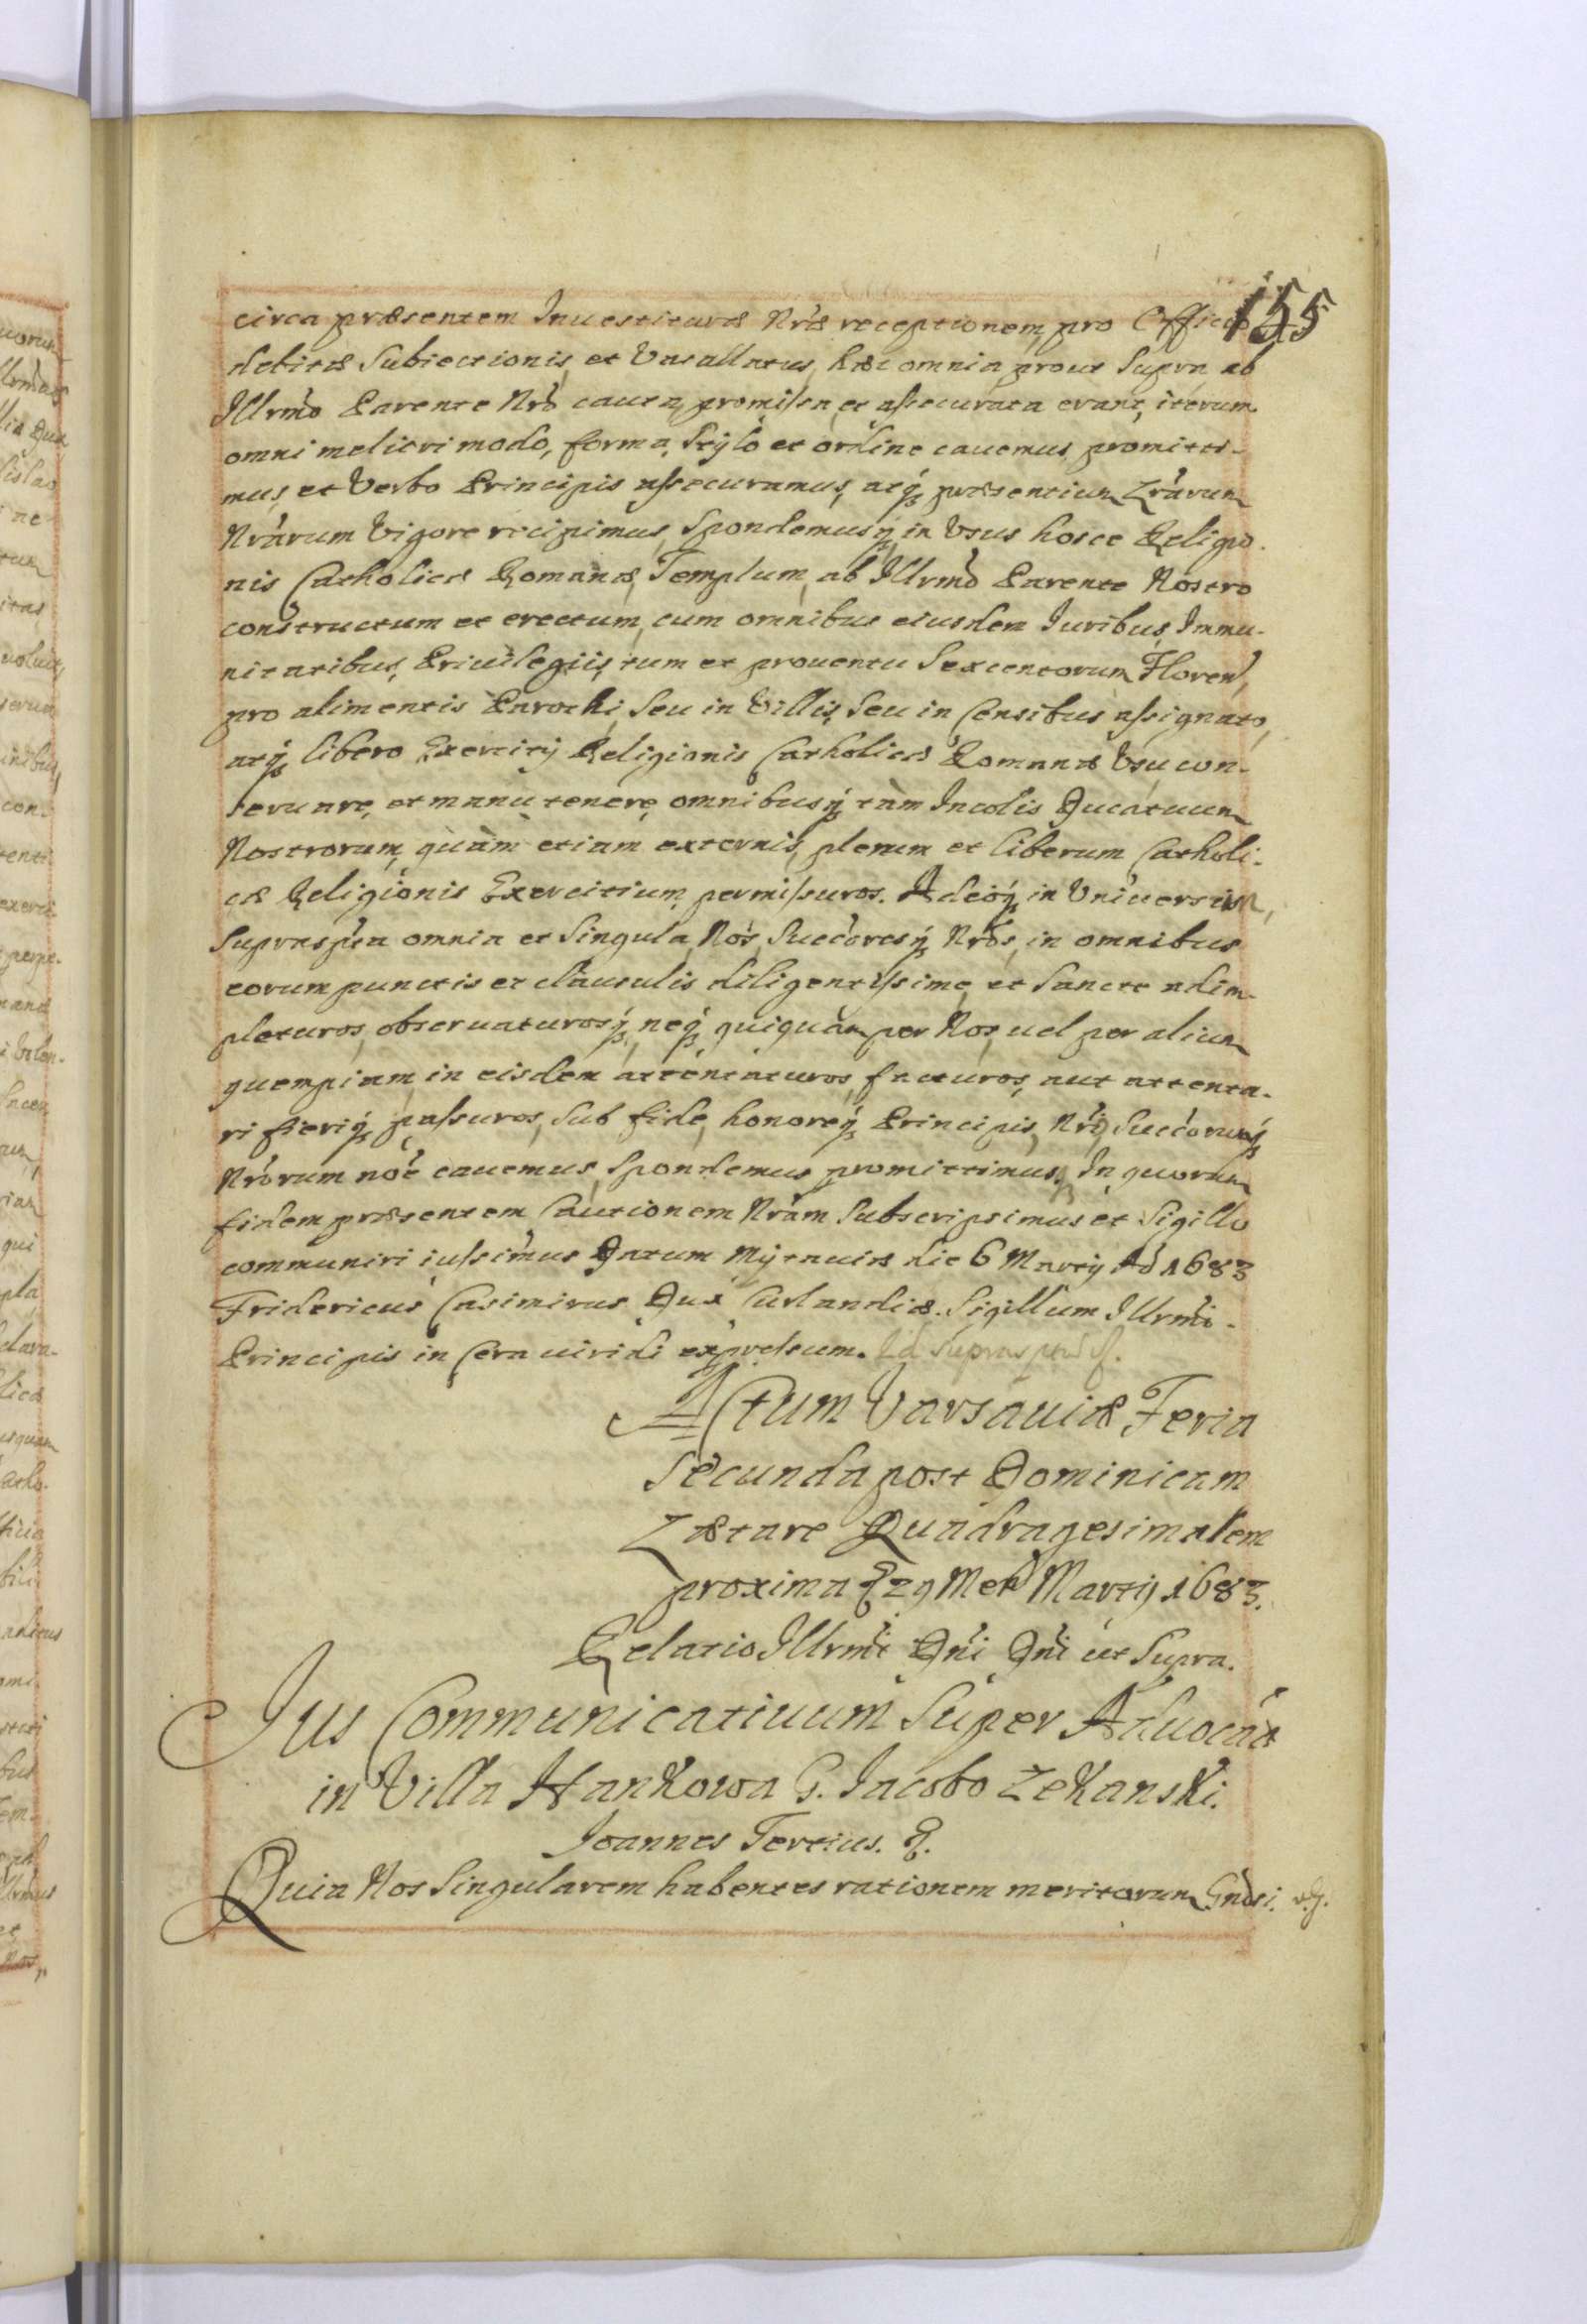 155
circa præsentem Inuestituræ Nræ receptionem, pro Officio
debitæ Subiectionis, et Vasallatus, hæc omnia prout Supra ab
Illrmo Parente Nro cauta, promissa, et assecurata erant, iterum
omni meliori modo, forma, Stylo et ordine cauemus, promitti-
mus, et Verbo Principis assecuramus, atq; præsentium Lrarum
Nrarum Vigore recipimus, Spondemusq; in Vsus hosce Religio-
nis Catholicæ Romanæ, Templum, ab Illrmo Parente Nostro
constructum et erectum, cum omnibus eiusdem Iuribus, Immu-
nitatibus, Priuilegijs, tum et prouentu Sexcentorum Floren,
pro alimentis Parochi, Seu in Villis, Seu in Censibus assignato,
atq; libero Exercitij Religionis Catholicæ Romanæ Vsu con-
seruare, et manu tenere, omnibusq; tàm Incolis Ducatuum
Nostrorum, quàm etiam externis, plenum et liberum Catholi-
cæ Religionis Exercitium, permissuros. Adeoq; in Vniuersum,
Supraspta omnia et Singula, Nos, Succoresq; Nros, in omnibus
eorum punctis et clausulis diligentissime, et Sancte adim-
pleturos, obseruaturosq;, neq; quiquam per Nos, uel per alium
quempiam, in eisdem attentaturos, facturos, aut attenta-
ri fieriq; passuros, Sub fide, honoreq; Principis, Nri, Succorumq;
Nrorum noe cauemus, Spondemus, promittimusq; In quorum
fidem præsentem Cautionem Nram Subscripsimus et Sigillo
communiri iussimus Datum Mytauiæ die 6 Martij Ao 1683
Fridericus Casimirus Dux Curlandiæ. Sigillum Illrmi
Principis in Cera uiridi expressum.
Actum Varsauiæ Feria
Secunda post Dominicam
Lætare Quadragesimalem
proxima 29 Men Martij 1683.
Relatio Illrmi Dni Dni ut Supra.
Jus Communicatiuum Super Aduocat
in Villa Hankowa G. Iacobo Zekanski.
Joannes Tertius. &.
Quia Nos Singularem habentes rationem meritorum Gnosi.